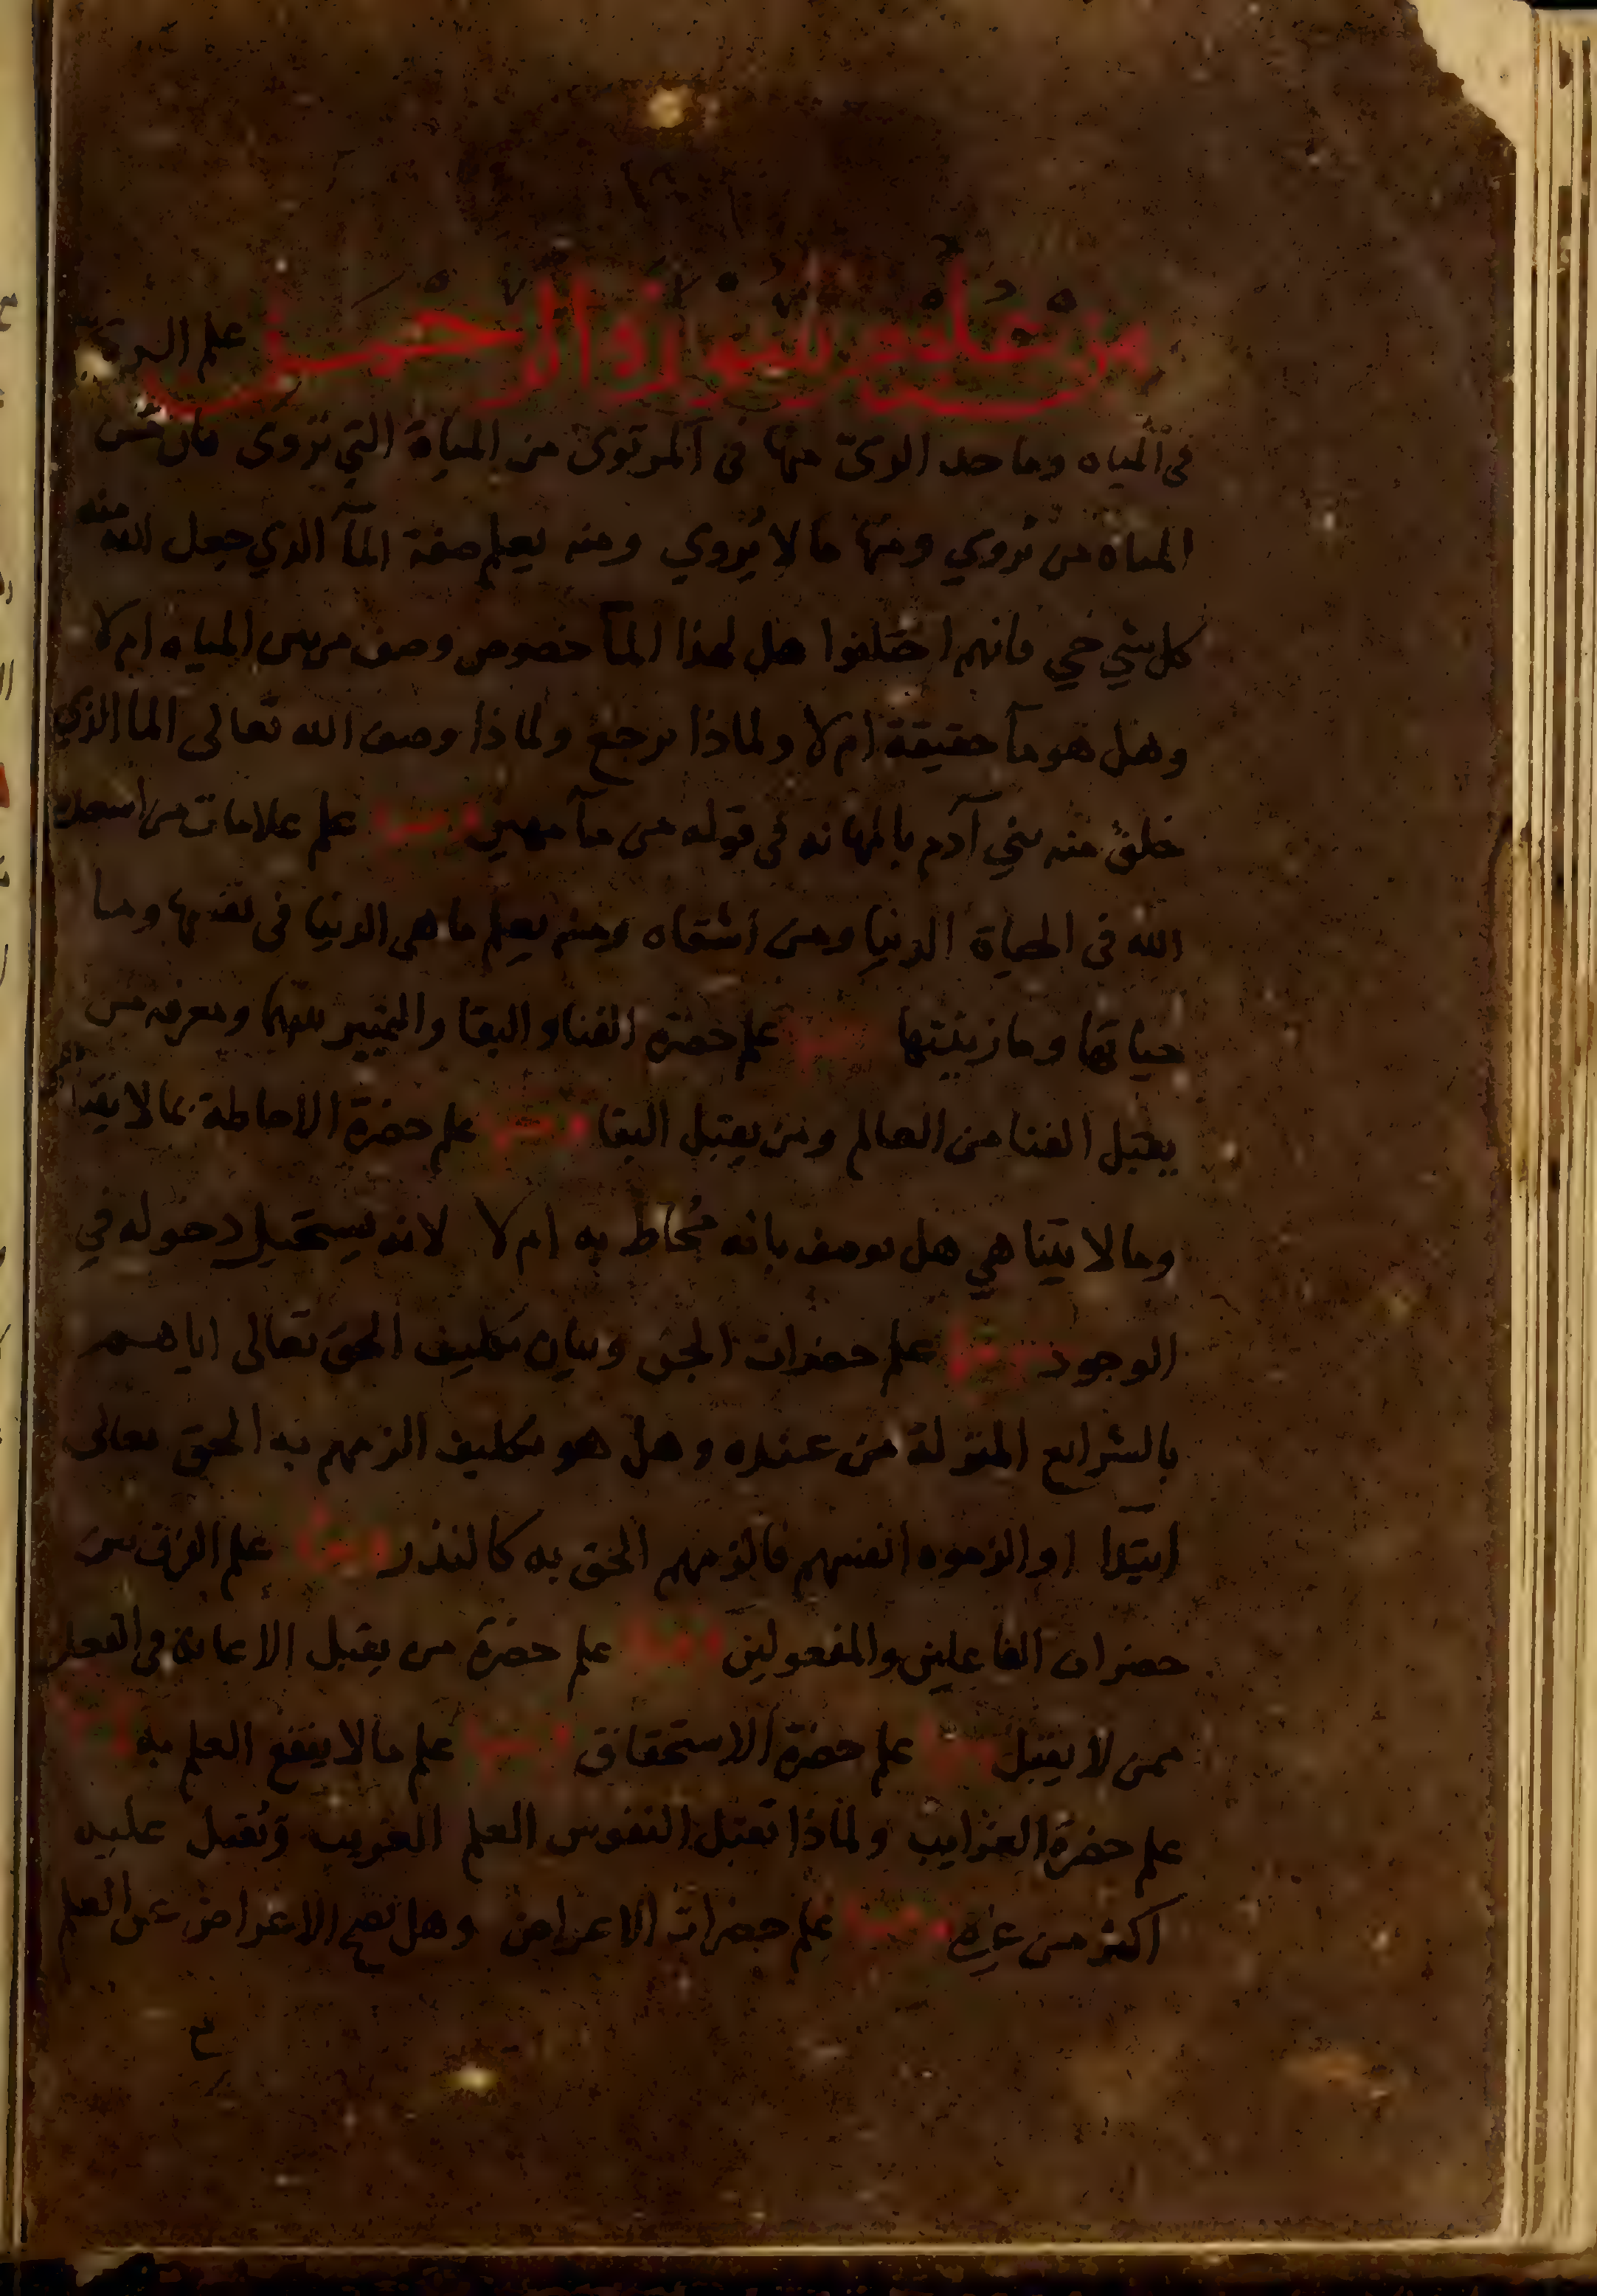 من علوم سورة الرحمن علم السر
في المياه وما حد الري منها في المرتوى من المياة التي تروى فان من
المياه من تروي ومنها ما لا يروي ومنه يعلم صفة المآ الذي جعل الله منه
كل شي حي فانهم اختلفوا هل لهذا المآ خصوص وصف من بين المياه ام لا
وهل هو مآ حقيقة ام لا ولماذا يرجع ولماذا وصف الله تعالى الما الذي
خلق منه بني آدم بالمهانه في قوله من مآ مهين ومنها علم علامات من اسعده
الله في الحياة الدنيا ومن اشقاه ومنه يعلم ما هي الدنيا في نفسها وما
حياتها وما زينتها ومنها علم حضرة الفنا والبقا والتمييز بينهما ومعرفه من
يقبل الفنا من العالم ومن يقبل البقا ومنها علم حضرة الاحاطة بما لا يتناهى
وما لا يتناهي هل يوصف بانه محاط به ام لا لانه يستحيل دخوله في
الوجود ومنها علم حضرات الجن وبيان تكليف الحق تعالى اياهم
بالشرايع المنزلة من عنده وهل هو تكليف الزمهم به الحق تعالى
ابتدا او الزموه انفسهم فالزمهم الحق به كالنذر ومنها علم الفرق بين
حضرات الفاعلين والمفعولين ومنها علم حضرة من يقبل الاعانة في الفعل
ممن لا يقبل ومنها علم حضرة الاستحقاق ومنها علم ما لا ينفع العلم به ومنها
علم حضرة الغرايب ولماذا تقبل النفوس العلم الغريب وتقبل عليه
اكثر من غيره ومنها علم حضرات الاعراض وهل يصح الاعراض عن العلم